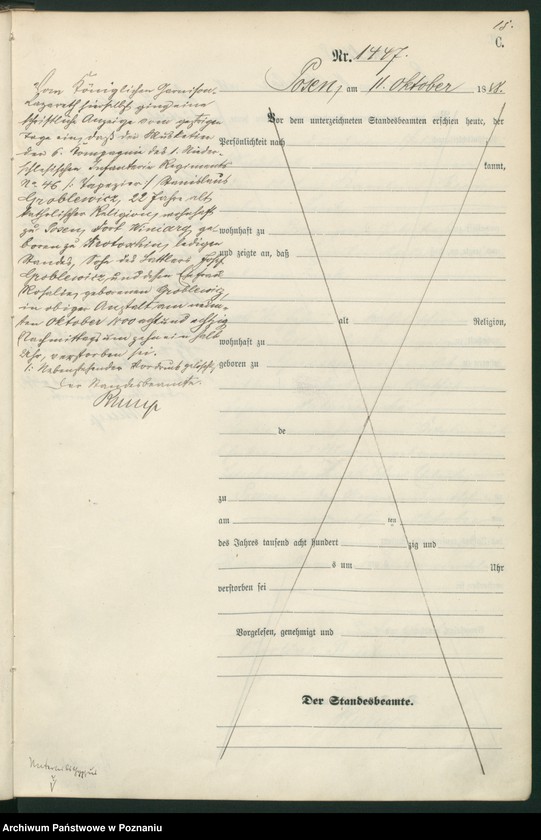 15.
C.
Nr. 1447.
Posen, am 11. Oktober 1888.
Vom Königlichen Garnison-
Lazareth hierselbst ging eine
schriftliche Anzeige vom gestrigen
Tage ein, daß der Musketier
der 6. Compagnie des 1. Nieder-
schlesischen Infanterie Regiments
No 46 /: Tapezier :/ Stanislaus
Groblewicz, 22 Jahre alt,
katholischer Religion, wohnhaft
zu Posen, Fort Winiary, ge-
boren zu Krotoschin, ledigen
Standes, Sohn des Sattlers Josef
Groblewicz und dessen Ehefrau
Rosalie, geborenen
in obiger Anstalt am neun-
ten Oktober 1800 acht und achtzig
Nachmittags um zehn ein halb
Uhr, verstorben sei.
/: Nebenstehender Vordruck gelöscht.
Der Standesbeamte.
Vor dem unterzeichneten Standesbeamten erschien heute, der
Persönlichkeit nach
kannt,
wohnhaft zu
und zeigte an, daß
alt Religion,
wohnhaft zu
geboren zu
de
zu
am ten
des Jahres tausend acht hundert zig und
s um Uhr
verstorben sei
Vorgelesen, genehmigt und
Der Standesbeamte.
Archiwum Państwowe w Poznaniu